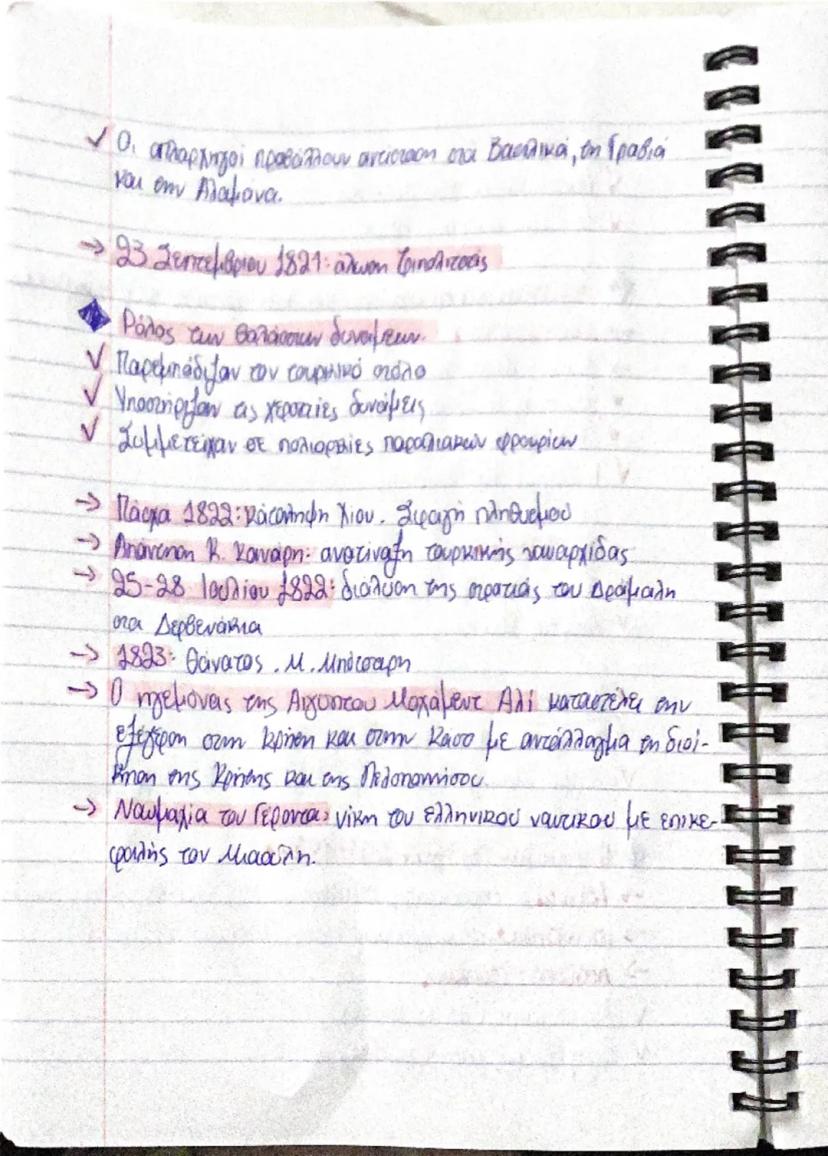 ✓ Οι οπλαρχηγοί προβάλλουν αντίσταση στα Βασιλικά, τη Γραβιά
και την Αλαμάνα.
→ 23 Σεπτεμβρίου 1821: άλωση Τριπολιτσάς
◆ Ρόλος των θαλάσσιων δυνάμεων.
✓ Παρεμπόδιζαν τον τουρκικό στόλο
✓ Υποστήριζαν τις χερσαίες δυνάμεις
✓ Συμμετείχαν σε πολιορκίες παραλιακών φρουρίων
→ Πάσχα 1822: κατάληψη Χίου. Σφαγή πληθυσμού
→ Απάντηση Κ. Κανάρη: ανατίναξη τουρκικής ναυαρχίδας
→ 25-28 Ιουλίου 1822: διάλυση της στρατιάς του Δράμαλη
στα Δερβενάκια
→ 1823: Θάνατος . Μ. Μπότσαρη
→ Ο ηγεμόνας της Αιγύπτου Μοχάμεντ Αλί καταστέλει την
εξέγερση στην Κρήτη και στην Κάσο με αντάλλαγμα τη διοί-
κηση της Κρήτης και της Πελοποννήσου.
→ Ναυμαχία του Γέροντα: νίκη του ελληνικού ναυτικού με επικε-
φαλής τον Μιαούλη.